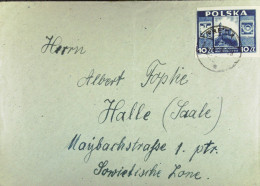 POLSKA
10 ZŁ 10 ZŁ
Herrn
Albert
Halle (Saale)
Maybachstraße 1. ptr.
Sowietische Zone.